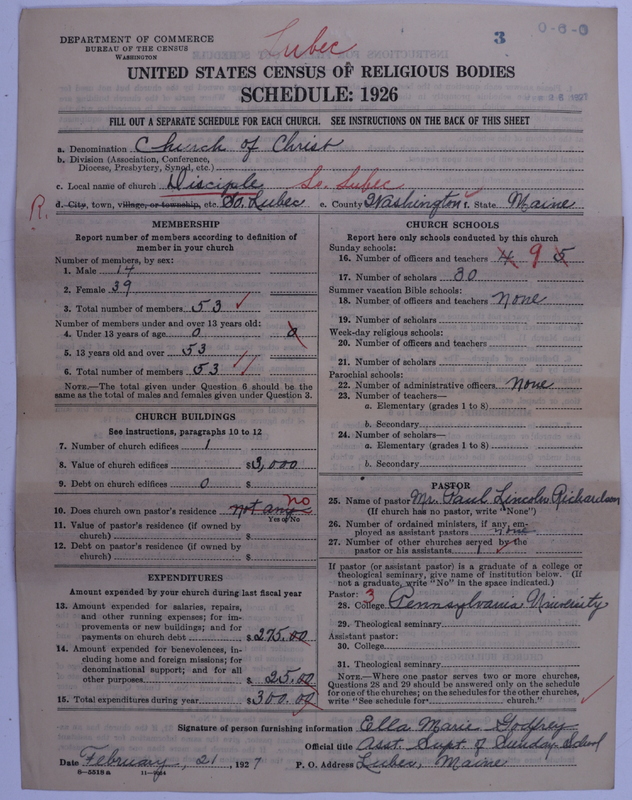 DEPARTMENT OF COMMERCE
BUREAU OF THE CENSUS
WASHINGTON
Lubec
3
0-6-0
UNITED STATES CENSUS OF RELIGIOUS BODIES
SCHEDULE: 1926
FILL OUT A SEPARATE SCHEDULE FOR EACH CHURCH. SEE INSTRUCTIONS ON THE BACK OF THIS SHEET
a. Denomination Church of Christ
b. Division (Association, Conference, Diocese, Presbytery, Synod, etc.)
c. Local name of church Disciple So. Lubec
R. d. City, town, village, or township, etc. So. Lubec e. County Washington f. State Maine
MEMBERSHIP
Report number of members according to definition of
member in your church
Number of members, by sex:
1. Male 14
2. Female 39
3. Total number of members 53
Number of members under and over 13 years old:
4. Under 13 years of age 0 0
5. 13 years old and over 53
6. Total number of members 53
NOTE.—The total given under Question 6 should be the
same as the total of males and females given under Question 3.
CHURCH BUILDINGS
See instructions, paragraphs 10 to 12
7. Number of church edifices 1
8. Value of church edifices $3,000
9. Debt on church edifices 0 $
10. Does church own pastor's residence not any no
Yes or No
11. Value of pastor's residence (if owned by
church) $
12. Debt on pastor's residence (if owned by
church) $
EXPENDITURES
Amount expended by your church during last fiscal year
13. Amount expended for salaries, repairs,
and other running expenses; for im-
provements or new buildings; and for
payments on church debt $275.00
14. Amount expended for benevolences, in-
cluding home and foreign missions; for
denominational support; and for all
other purposes $ 25.00
15. Total expenditures during year $300.00
CHURCH SCHOOLS
Report here only schools conducted by this church
Sunday schools:
16. Number of officers and teachers 4 9 5
17. Number of scholars 30
Summer vacation Bible schools:
18. Number of officers and teachers none
19. Number of scholars
Week-day religious schools:
20. Number of officers and teachers
21. Number of scholars
Parochial schools:
22. Number of administrative officers none
23. Number of teachers—
a. Elementary (grades 1 to 8)
b. Secondary
24. Number of scholars—
a. Elementary (grades 1 to 8)
b. Secondary
PASTOR
25. Name of pastor Mr. Paul Lincoln Richardson
(If church has no pastor, write "None")
26. Number of ordained ministers, if any, em-
ployed as assistant pastors none
27. Number of other churches served by the
pastor or his assistants 1
If pastor (or assistant pastor) is a graduate of a college or
theological seminary, give name of institution below. (If
not a graduate, write "No" in the space indicated.)
Pastor: 3
28. College Pennsylvania University
29. Theological seminary
Assistant pastor:
30. College
31. Theological seminary
NOTE.—Where one pastor serves two or more churches,
Questions 28 and 29 should be answered only on the schedule
for one of the churches; on the schedules for the other churches,
write "See schedule for church."
Signature of person furnishing information Ella Marie Godfrey
Official title Asst. Supt. of Sunday School
Date February, 21, 1927 P. O. Address Lubec, Maine
8-5518 a